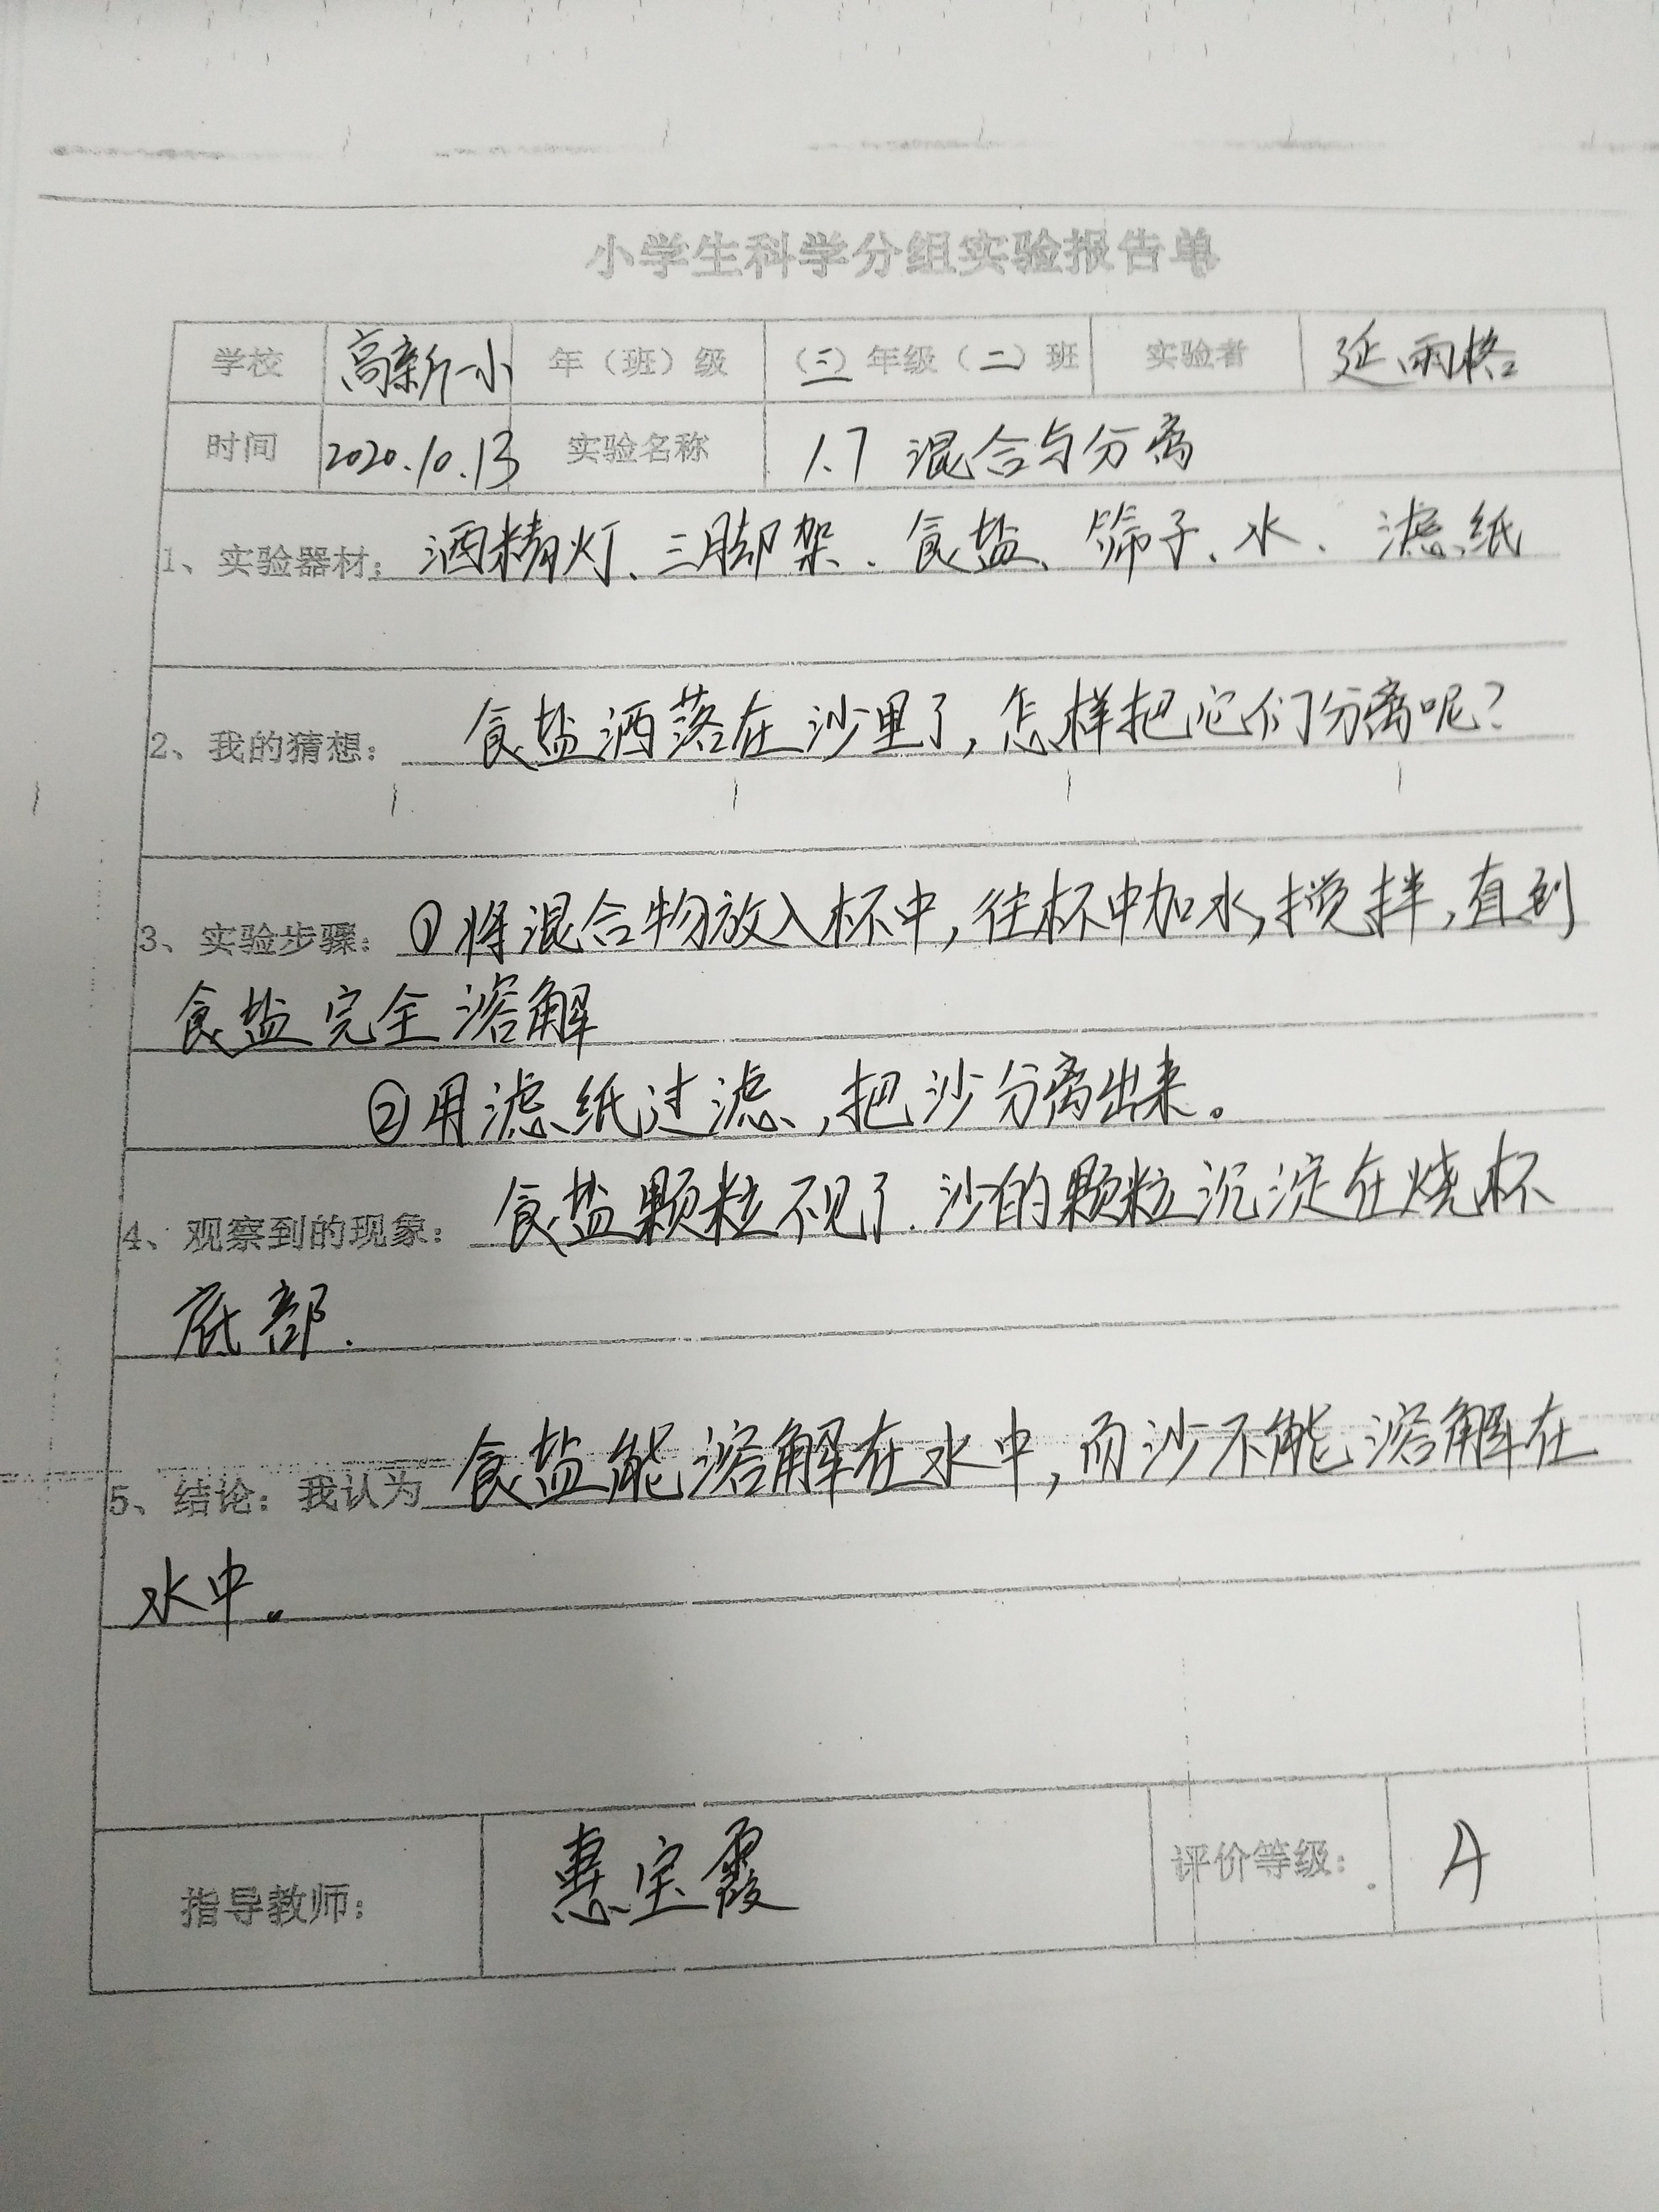 小学生科学分组实验报告单
学校 高新一小 年（班）级 （三）年级（二）班 实验者 延雨格
时间 2020.10.13 实验名称 1.7 混合与分离
1、实验器材：酒精灯、三脚架、食盐、筛子、水、滤纸
2、我的猜想：食盐洒落在沙里了，怎样把它们分离呢？
3、实验步骤：①将混合物放入杯中，往杯中加水，搅拌，直到
食盐完全溶解
②用滤纸过滤，把沙分离出来。
4、观察到的现象：食盐颗粒不见了.沙的颗粒沉淀在烧杯
底部.
5、结论：我认为 食盐能溶解在水中，而沙不能溶解在
水中。
指导教师： 惠宝霞 评价等级： A